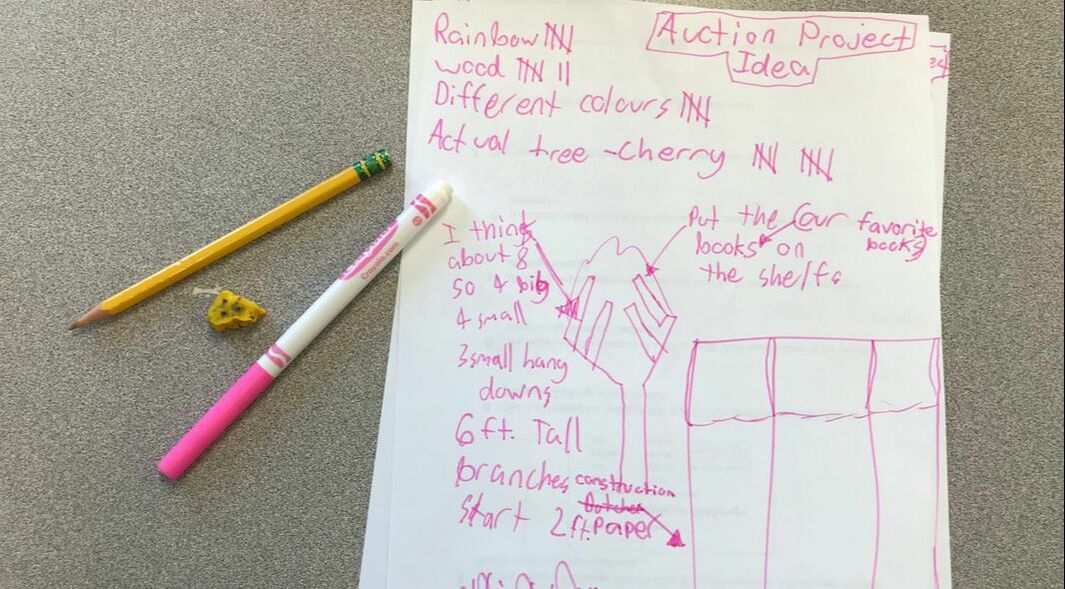 Auction Project
Idea
Rainbow
wood
Different colours
Actual tree - Cherry
I think
about 8
so 4 big
4 small
3 small hang
downs
6 ft. Tall
Branches
start 2 ft.
Put the Our favorite
books
books on
the shelfs
construction
Paper
Crayola
Crayola.com